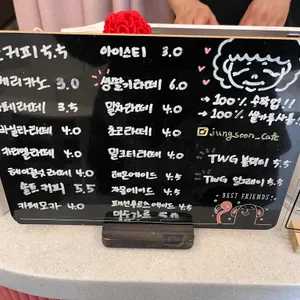 커피 5.5
메리카노 3.0
페라떼 3.5
닐라라떼 4.0
카라멜라떼 4.0
헤이즐넛라떼 4.0
솔트커피 5.5
카페모카 4.0
아이스티 3.0
생딸기라떼 6.0
말차라떼 4.0
초코라떼 4.0
밀크티라떼 4.0
레몬에이드 4.5
자몽에이드 4.5
패션후르츠에이드 4.5
마도가르 5.0
→ 100% 수작업!!
→ 100%
jungsoon_cafe
TWG 블랙티 5.5
TWG 얼그레이 5.5
BEST FRIENDS